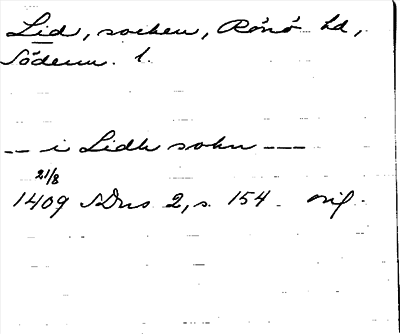 Lid, socken, Rönö hd,
Söderm. l.
-- i Lidh sokn ---
21/8
1409 SDns 2, s. 154. orig.